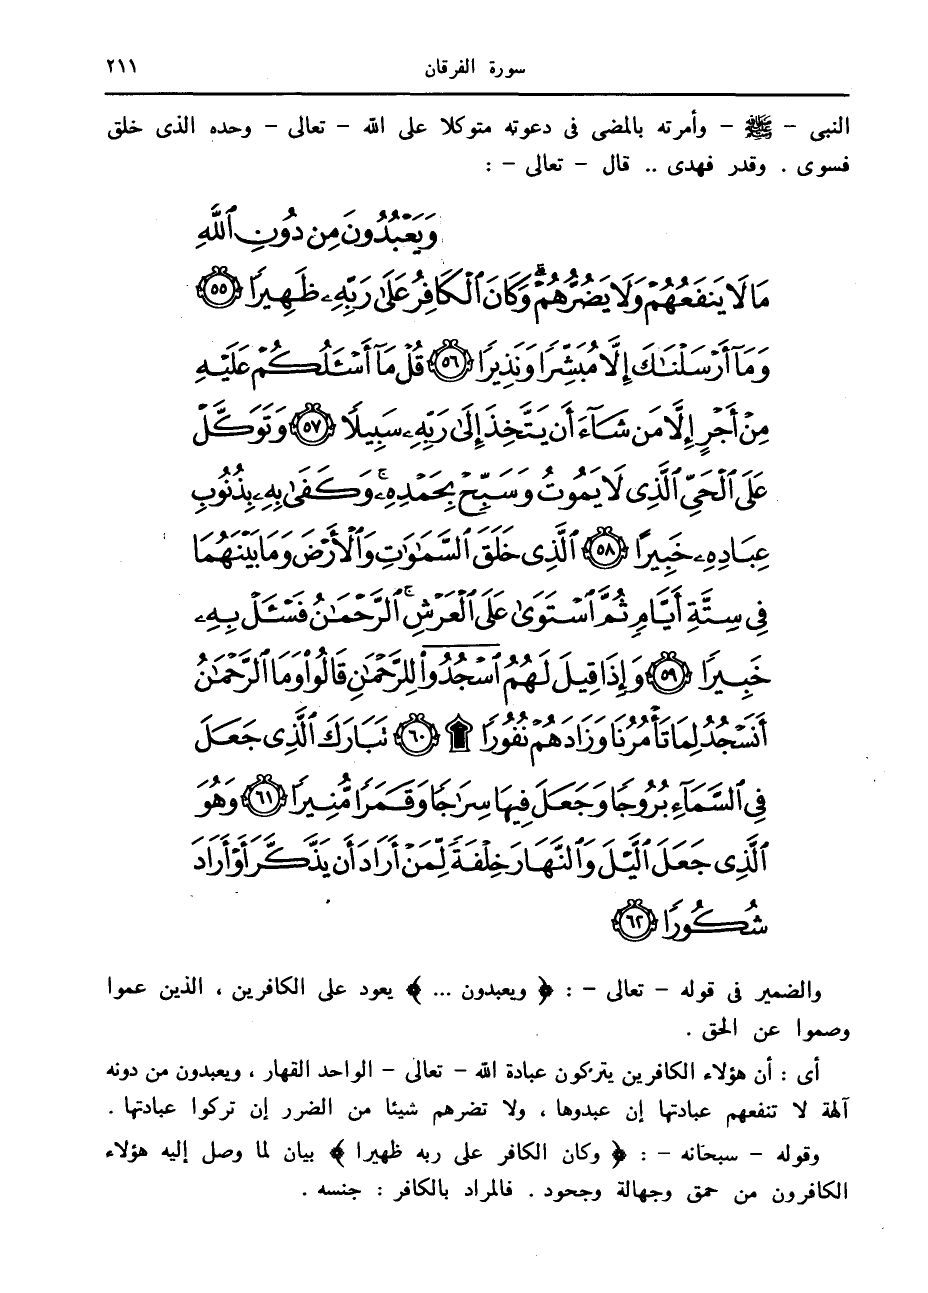 سورة الفرقان ٢١١
النبى – ﷺ – وأمرته بالمضى فى دعوته متوكلا على الله – تعالى – وحده الذى خلق
فسوى . وقدر فهدى .. قال – تعالى – :
وَيَعْبُدُونَ مِن دُونِ ٱللَّهِ
مَا لَا يَنفَعُهُمْ وَلَا يَضُرُّهُمْ ۗ وَكَانَ ٱلْكَافِرُ عَلَىٰ رَبِّهِۦ ظَهِيرًا ٥٥
وَمَآ أَرْسَلْنَـٰكَ إِلَّا مُبَشِّرًا وَنَذِيرًا ٥٦ قُلْ مَآ أَسْـَٔلُكُمْ عَلَيْهِ
مِنْ أَجْرٍ إِلَّا مَن شَآءَ أَن يَتَّخِذَ إِلَىٰ رَبِّهِۦ سَبِيلًا ٥٧ وَتَوَكَّلْ
عَلَى ٱلْحَىِّ ٱلَّذِى لَا يَمُوتُ وَسَبِّحْ بِحَمْدِهِۦ ۚ وَكَفَىٰ بِهِۦ بِذُنُوبِ
عِبَادِهِۦ خَبِيرًا ٥٨ ٱلَّذِى خَلَقَ ٱلسَّمَـٰوَٰتِ وَٱلْأَرْضَ وَمَا بَيْنَهُمَا
فِى سِتَّةِ أَيَّامٍ ثُمَّ ٱسْتَوَىٰ عَلَى ٱلْعَرْشِ ۚ ٱلرَّحْمَـٰنُ فَسْـَٔلْ بِهِۦ
خَبِيرًا ٥٩ وَإِذَا قِيلَ لَهُمُ ٱسْجُدُوا۟ لِلرَّحْمَـٰنِ قَالُوا۟ وَمَا ٱلرَّحْمَـٰنُ
أَنَسْجُدُ لِمَا تَأْمُرُنَا وَزَادَهُمْ نُفُورًا ۩ ٦٠ تَبَارَكَ ٱلَّذِى جَعَلَ
فِى ٱلسَّمَآءِ بُرُوجًا وَجَعَلَ فِيهَا سِرَٰجًا وَقَمَرًا مُّنِيرًا ٦١ وَهُوَ
ٱلَّذِى جَعَلَ ٱلَّيْلَ وَٱلنَّهَارَ خِلْفَةً لِّمَنْ أَرَادَ أَن يَذَّكَّرَ أَوْ أَرَادَ
شُكُورًا ٦٢
والضمير فى قوله – تعالى – : ﴿ ويعبدون ... ﴾ يعود على الكافرين ، الذين عموا
وصموا عن الحق .
أى : أن هؤلاء الكافرين يتركون عبادة الله – تعالى – الواحد القهار ، ويعبدون من دونه
آلهة لا تنفعهم عبادتها إن عبدوها ، ولا تضرهم شيئا من الضرر إن تركوا عبادتها .
وقوله – سبحانه – : ﴿ وكان الكافر على ربه ظهيرا ﴾ بيان لما وصل إليه هؤلاء
الكافرون من حمق وجهالة وجحود . فالمراد بالكافر : جنسه .